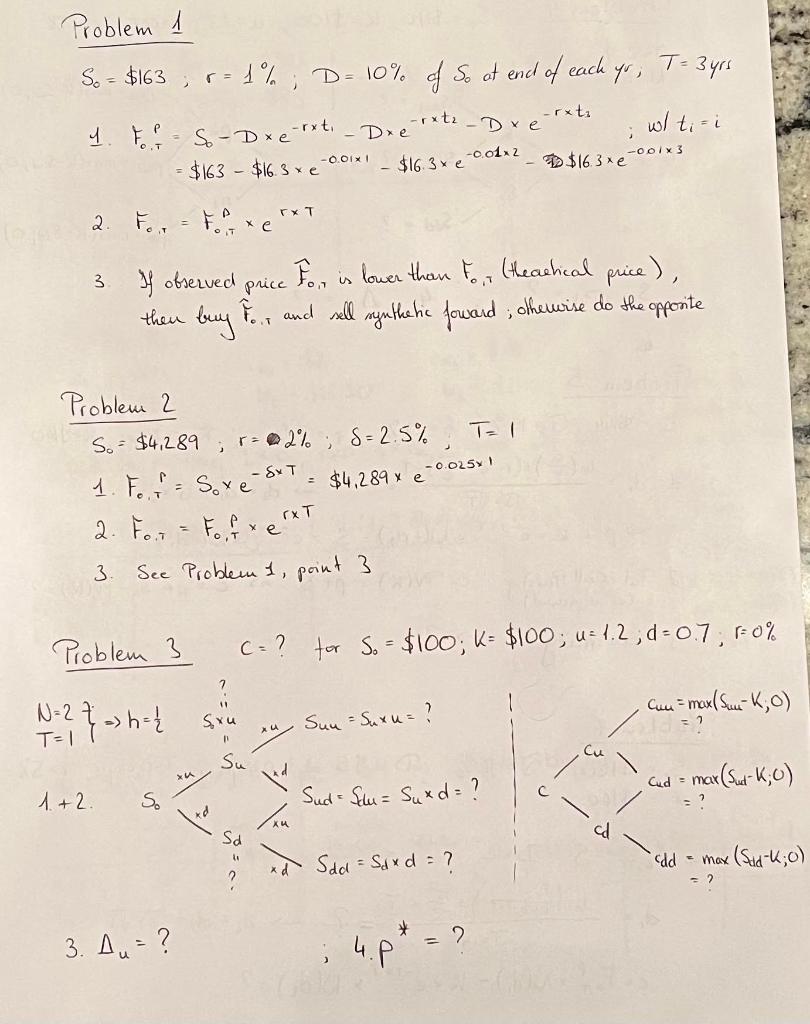 Problem 1
S₀ = $163 ; r = 1% ; D = 10% of S₀ at end of each yr ; T = 3 yrs
1. F₀,ₜᴾ = S₀ - D×e^(-r×t₁) - D×e^(-r×t₂) - D×e^(-r×t₃) ; w/ tᵢ = i
= $163 - $16.3×e^(-0.01×1) - $16.3×e^(-0.01×2) - $16.3×e^(-0.01×3)
2. F₀,ₜ = F₀,ₜᴾ × e^(r×T)
3. If observed price F̂₀,ₜ is lower than F₀,ₜ (theoretical price),
then buy F̂₀,ₜ and sell synthetic foward ; otherwise do the opposite
Problem 2
S₀ = $4,289 ; r = 2% ; δ = 2.5% ; T = 1
1. F₀,ₜᴾ = S₀×e^(-δ×T) = $4,289 × e^(-0.025×1)
2. F₀,ₜ = F₀,ₜᴾ × e^(r×T)
3. See Problem 1, point 3
Problem 3 C = ? for S₀ = $100; K = $100; u = 1.2 ; d = 0.7 ; r = 0%
N = 2 } => h = 1/2
T = 1
?
"
S₀×u
"
Su
×u Suu = Su×u = ?
Cuu = max(Suu - K; 0)
= ?
×u
×d
Cu
1. + 2. S₀
Sud = Sdu = Su×d = ?
C
Cud = max(Sud - K; 0)
= ?
×d
×u
Sd
"
?
×d Sdd = Sd×d = ?
Cd
Cdd = max(Sdd - K; 0)
= ?
3. Δu = ? ; 4. p* = ?